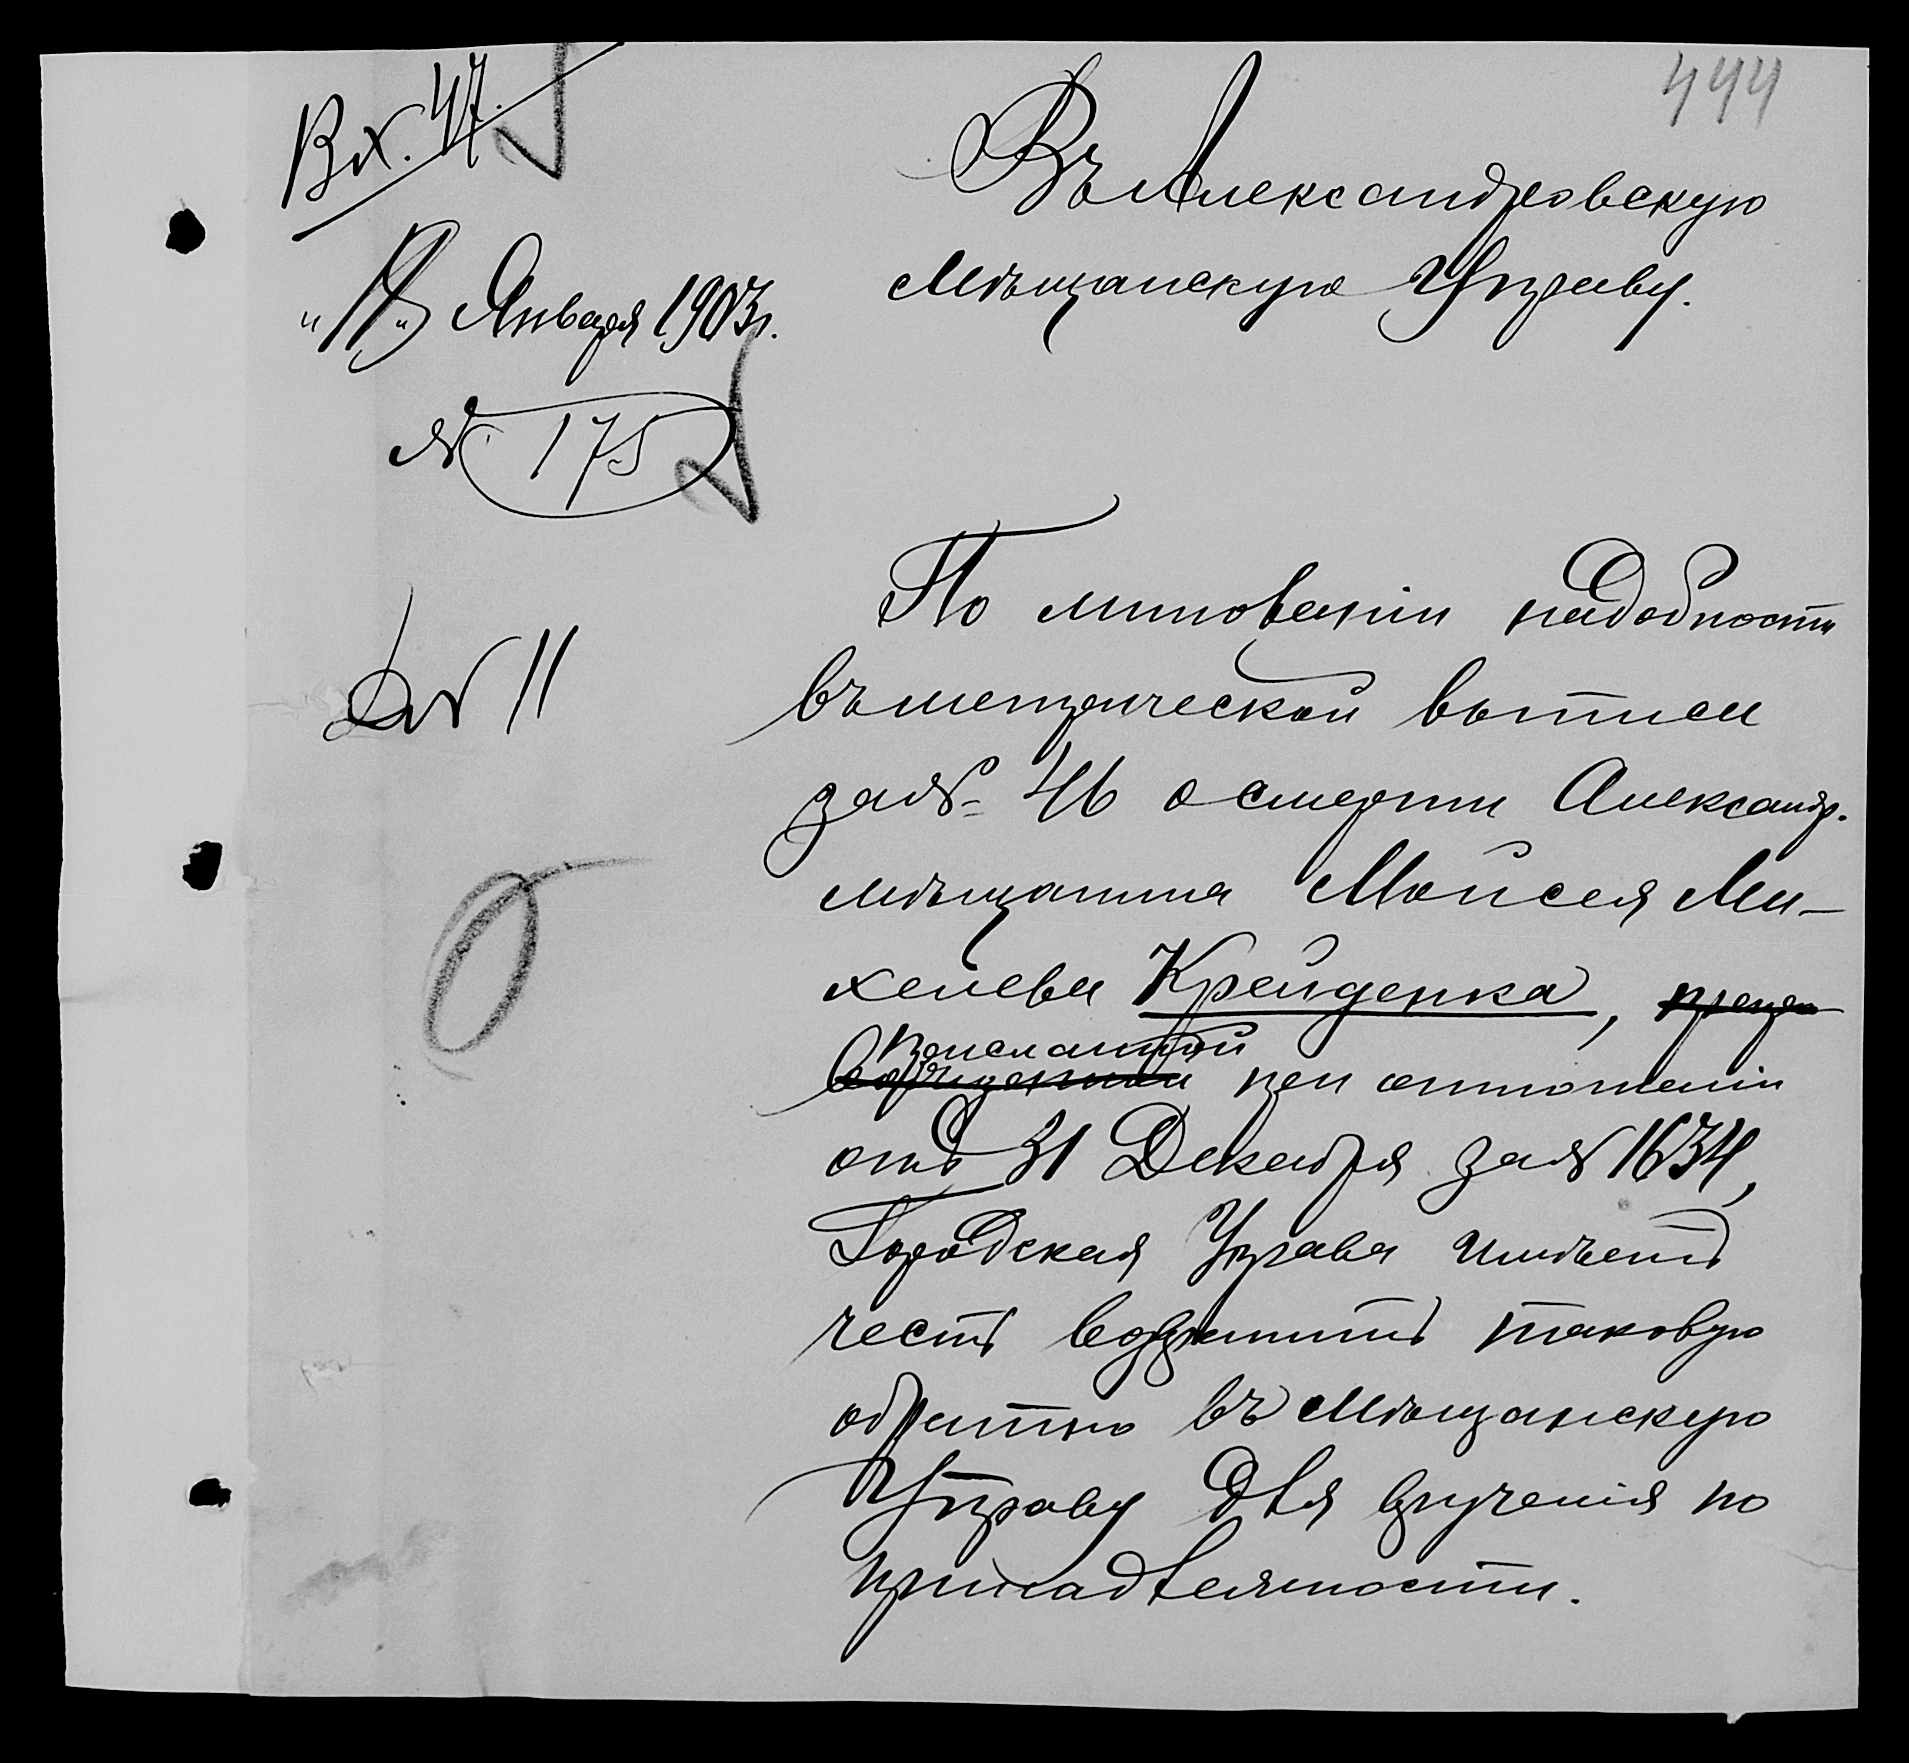 Вх. 47.
444
Въ Александровскую
Мѣщанскую Управу.
Января 1903 г.
№ 175
№ 11
По минованіи надобности
въ метрической выписи
за № 46 о смерти Александр.
мѣщанина Мойсея Ми-
хелева Крейденка,
присланной
возвращенной при отношеніи
отъ 31 Декабря за № 1634,
Городская Управа имѣетъ
честь возвратить таковую
обратно въ Мѣщанскую
Управу для врученія по
принадлежности.